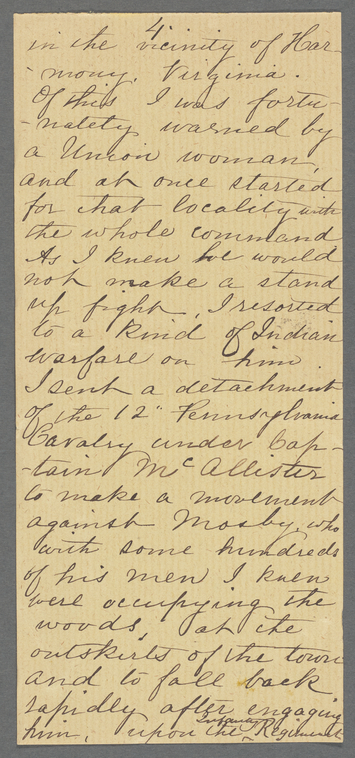 4.
in the vicinity of Har-
mony, Virginia.
Of this I was fortu-
-nately warned by
a Union woman,
and at once started
for that locality with
the whole command
As I knew he would
not make a stand
up fight, I resorted
to a kind of Indian
warfare on him.
I sent a detachment
of the 12" Pennsylvania
Cavalry under Cap-
-tain McAllister
to make a movement
against Mosby, who
with some hundreds
of his men I knew
were occupying the
woods, at the
outskirts of the town
and to fall back
rapidly after engaging
him, upon the Infantry Regiment